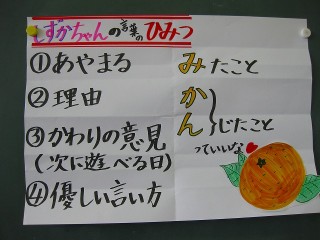 しずかちゃんの言葉のひみつ
①あやまる
②理由
③かわりの意見
(次に遊べる日)
④優しい言い方
みたこと
かん}じたこと
っていいな